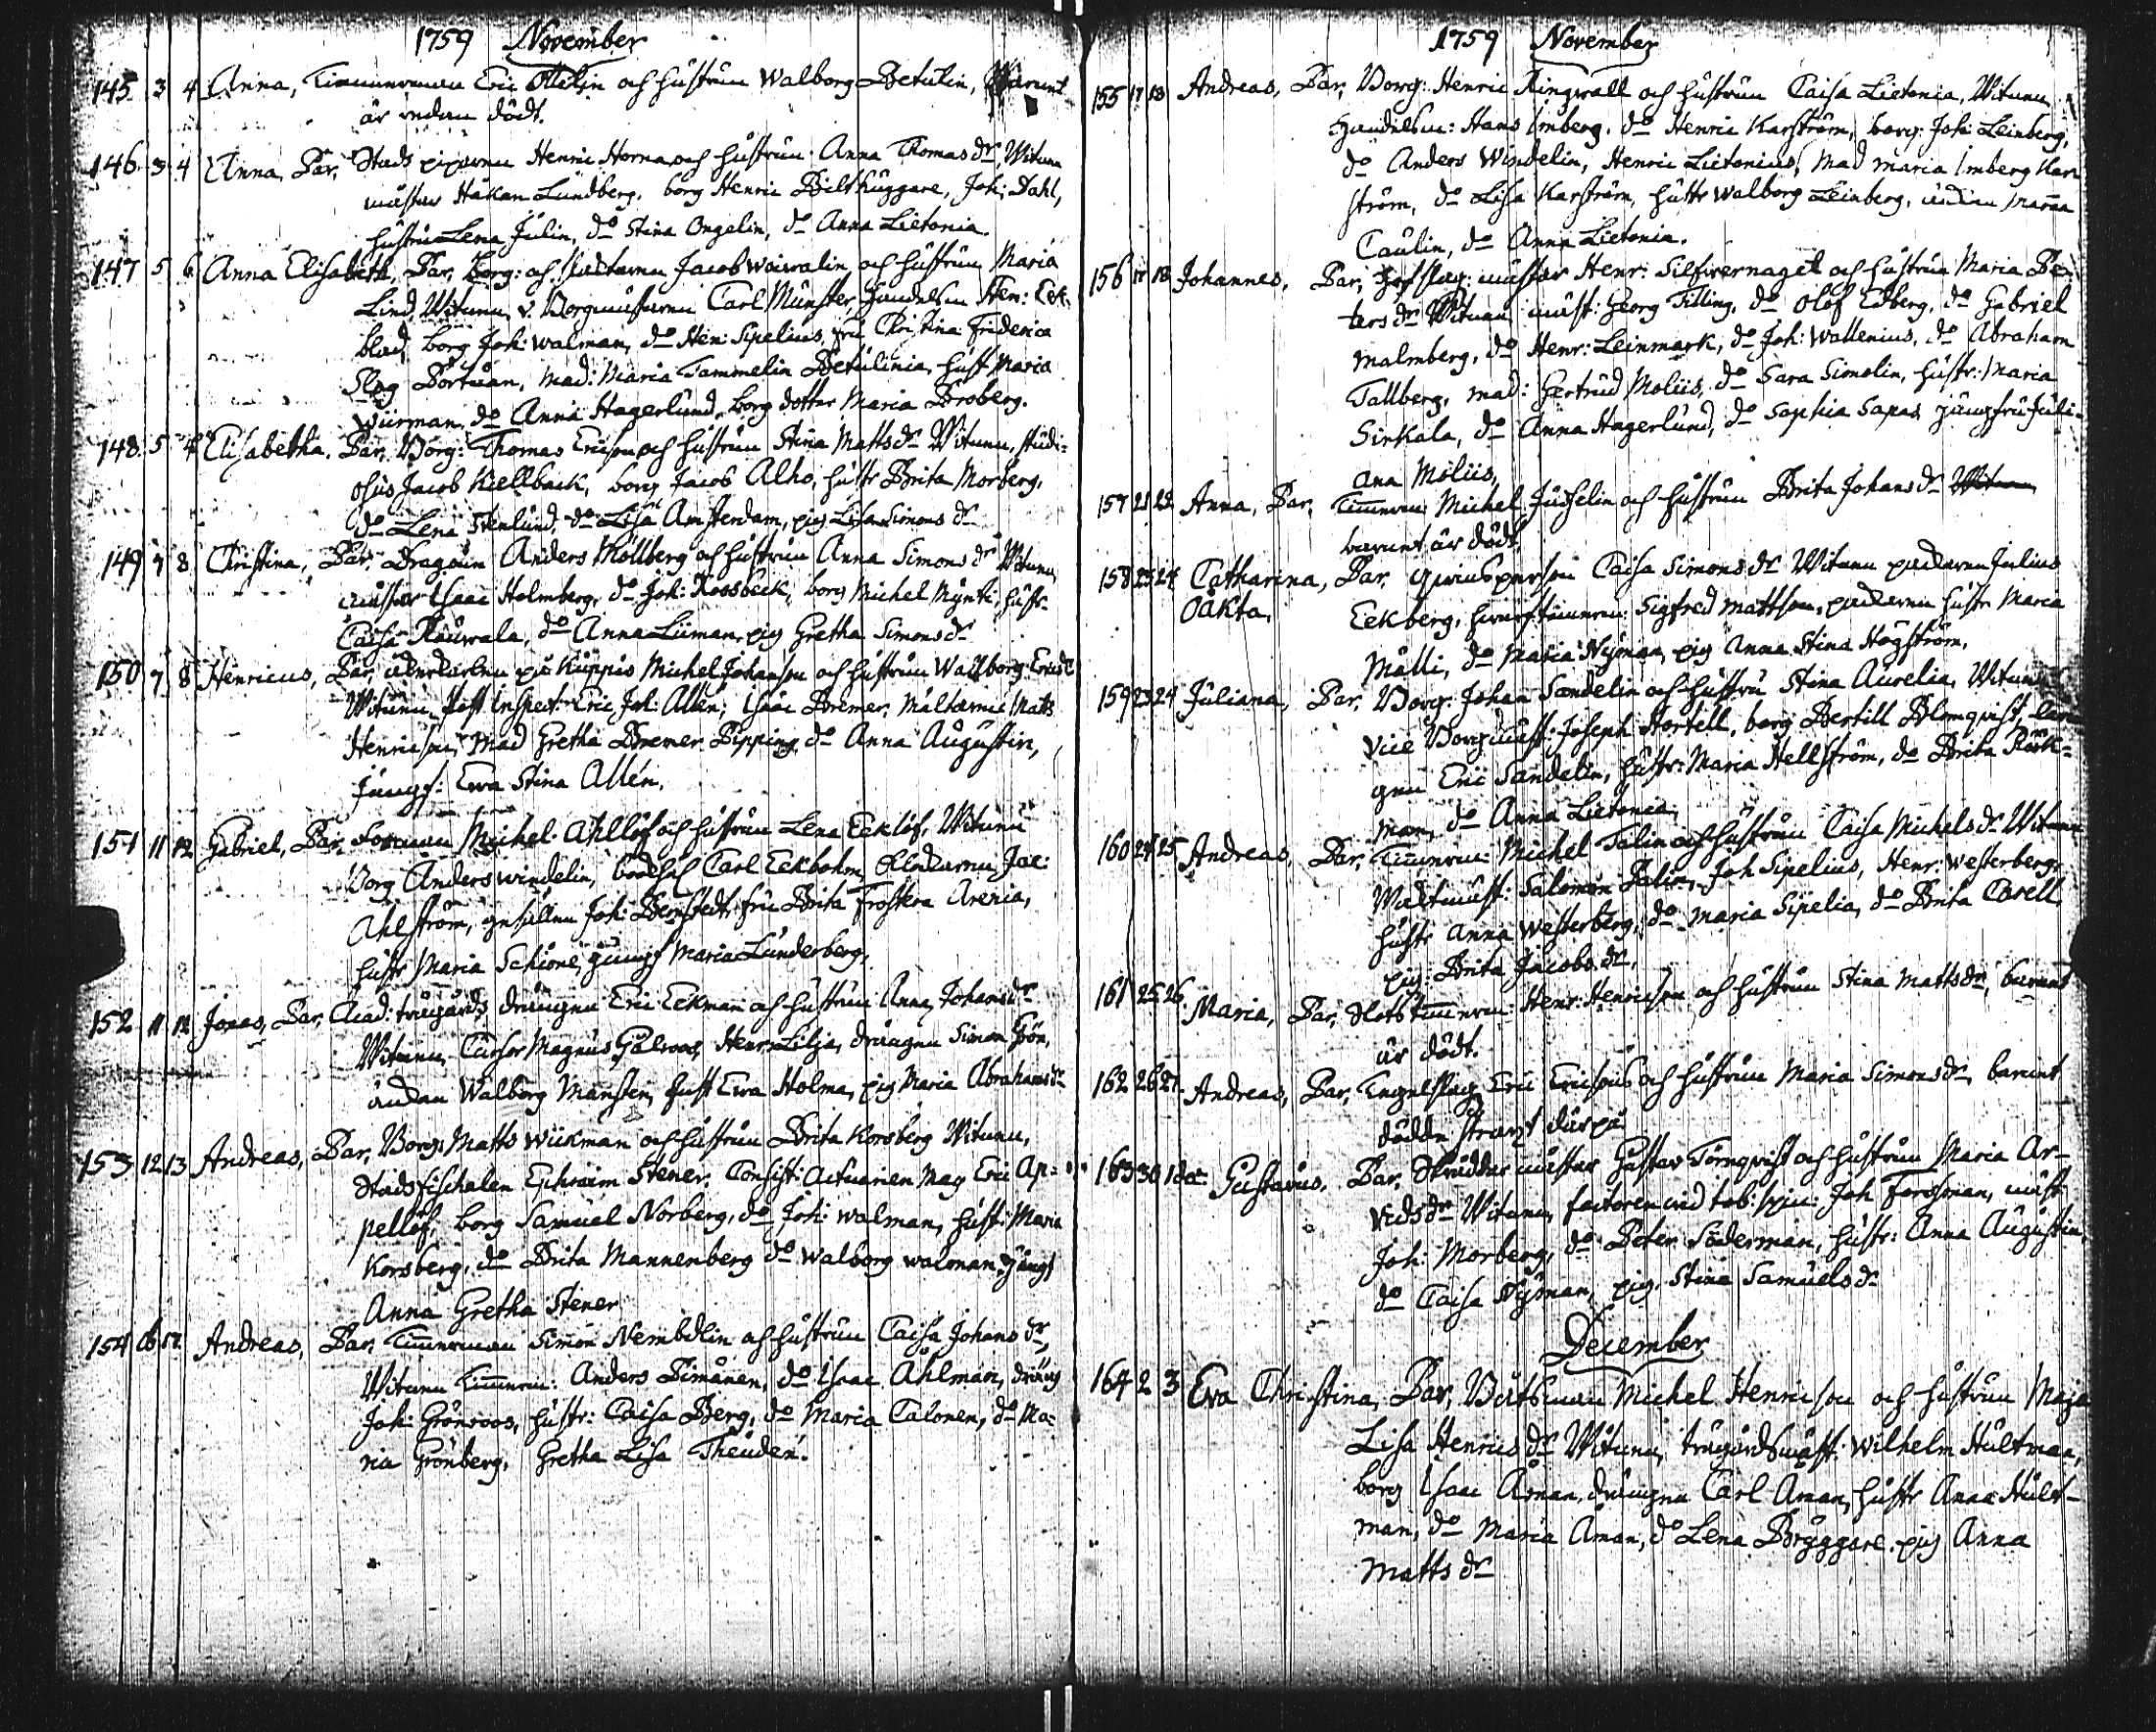 1759 November
145 3 4 Anna, Timmerman Eric Ottelin och hustrun Walborg Betulin, Barnet
är redan dödt.
146 3 4 Anna, Par, Stads piparen Henric Horna och hustrun Anna Thomas dr Witnen
mästar Håkan Lundberg, borg Henric Bilthuggare, Joh: Dahl,
hustrun Lena Julin, do Stina Ongelin, do Anna Lietonia.
147 5 6 Anna Elisabeth, Par, Borg: och slactaren Jacob Woivalin och hustrun Maria
Lind, Witnen, v. Borgmästaren Carl Münster, Handelsm Hen: Eek-
blad, borg Joh: Walman, do Hen: Sipelius, fru Christina Friderica
Slog Portuan, Mad: Maria Tammelin Betulinia, hust Maria
Wiirman, do Anna Hagerlund, borg dotter Maria Broberg.
148 5 Elisabetha, Par, Borg: Thomas Ericson och hustrun Stina Matts dr Witnen, studi-
osus Jacob Kiellback, borg Jacob Alho, hustr Brita Morberg,
do Lena Stenlund, do Lisa Amsterdam, pig Lisa Simons dr
149 7 8 Christina, Par, Dragoun Anders Thollberg och hustrun Anna Simons dr Witnen
mästar Isaac Holmberg, do Joh: Rossbeck, borg Michel Mynti, hustr
Caisa Rauvala, do Anna Liiman, pig Gretha Simons dr
150 7 8 Henricus, Par, på Kuppis Michel Johanson och hustrun Wallborg Erics dr
Witnen, Post Inspect: Eric Joh: Allén, Isaac Bremer, Mats
Henricson, Mad Gretha Bremer Pipping, do Anna Augustin,
jungf: Ewa Stina Allén.
151 11 12 Gabriel, Par, Forman Michel Ahllöf och hustrun Lena Eeklöf, Witnen
Borg Anders Windelin, Carl Eekbohm, Klockaren Jac:
Ahlström, gesällen Joh: Bernstedt, fru Brita Frostera Arenia,
hustr Maria Schiöne, jungf Maria Lunderberg.
152 11 12 Jonas, Par, Acad: trägårds drängen Eric Eekman och hustrun Anna Johans dr
Witnen, Cursor Magnus Galroos, Henr: Lilja, drängen Simon Grön,
änkan Walborg Mansten, hust Ewa Holma, pig Maria Abrahams dr
153 12 13 Andreas, Par, Borg: Matts Wiikman och hustrun Brita Korsberg Witnen,
Stadsfischalen Ephraim Stener, Consist: Actuarien Mag Eric Ap-
pellöf, borg Samuel Norberg, do Joh: Walman, hust: Maria
Korsberg, do Brita Mannenberg do Walborg Walman, Jungf
Anna Gretha Stener
154 16 17 Andreas, Par, Timmerman Simon Nembelin och hustrun Caisa Johans dr,
Witnen Timmerm: Anders Pimänen, do Isaac Ahlman, dräng
Joh: Grönroos, hustr: Caisa Berg, do Maria Talonen, do Ma-
ria Grönberg, Gretha Lisa Theuden.
1759 November
155 17 18 Andreas, Par, Borg: Henric Ringwall och hustrun Caisa Lietonia, Witnen
Handelsm: Hans Imberg, do Henric Karström, borg: Joh: Leinberg,
do Anders Windelin, Henric Lietonius, Mad Maria Imberg Kar
ström, do Lisa Karström, hustr Walborg Leinberg, änkan
Caulin, do Anna Lietonia.
156 17 18 Johannes, Par, mästar Henr: Silfwernagel och hustrun Maria Pe-
ters dr Witnen mäst: Georg Tilling, do Olof Edberg, do Gabriel
Malmberg, do Henr: Leinmark, do Joh: Wallenius, do Abraham
Tallberg, mad: Gertrud Molius, do Sara Simolin, hustr: Maria
Sirkala, do Anna Hagerlund, do Sophia Sapas jungfru Juli-
ana Molius,
157 21 22 Anna, Par, Timmerm: Michel Juselin och hustrun Brita Johans dr Witnen
barnet är dödt.
158 23 24 Catharina, Par, Caisa Simons dr Witnen packaren Julius
Oäkta. Eekberg, timmerm: Sigfred Mattson, packaren hustr Maria
Mälli, do Maria Nyman, pig Anna Stina Högström.
159 23 24 Juliana, Par, Borg: Johan Sandelin och hustru Stina Aurelia, Witnen
Vice Borgmäst: Joseph Hortell, borg Bertill Blomqvist,
Eric Sandelin, hustr: Maria Hellström, do Brita Rock-
man, do Anna Lietonia,
160 24 25 Andreas, Par, Timmerm: Michel Talin och hustrun Caisa Michels dr Witnen
Waktmäst: Salomon Palin, Joh Sipelius, Henr: Westerberg,
hustr Anna Westerberg, do Maria Sipelia, do Brita Corell,
pig: Brita Jacobs dr.
161 25 26 Maria, Par, Slotstimmerm: Henr: Henricson och hustrun Stina Matts dr, barnet
är dödt.
162 26 27 Andreas, Par, Tegelslag: Eric Ericson och hustrun Maria Simons dr, barnet
dödde strax därpå.
163 30 1 dec: Gustavus, Par, Skräddar mästar Gustav Törnqvist och hustrun Maria Ar-
vids dr Witnen, factoren wid tob: spin: Joh Forssman, mäst
Joh: Morberg, do Peter Söderman, hustr: Anna Augustin,
do Caisa Nyman, pig Stina Samuels dr
December
164 2 3 Eva Christina, Par, Båtsman Michel Henricson och hustrun Maja
Lisa Henrics dr Witnen, trägårdsmäst: Wilhelm Hultman,
borg Isaac Åman, drängen Carl Aman, hustr Anna Hult-
man, do Maria Aman, do Lena Bryggare, pig Anna
Matts dr